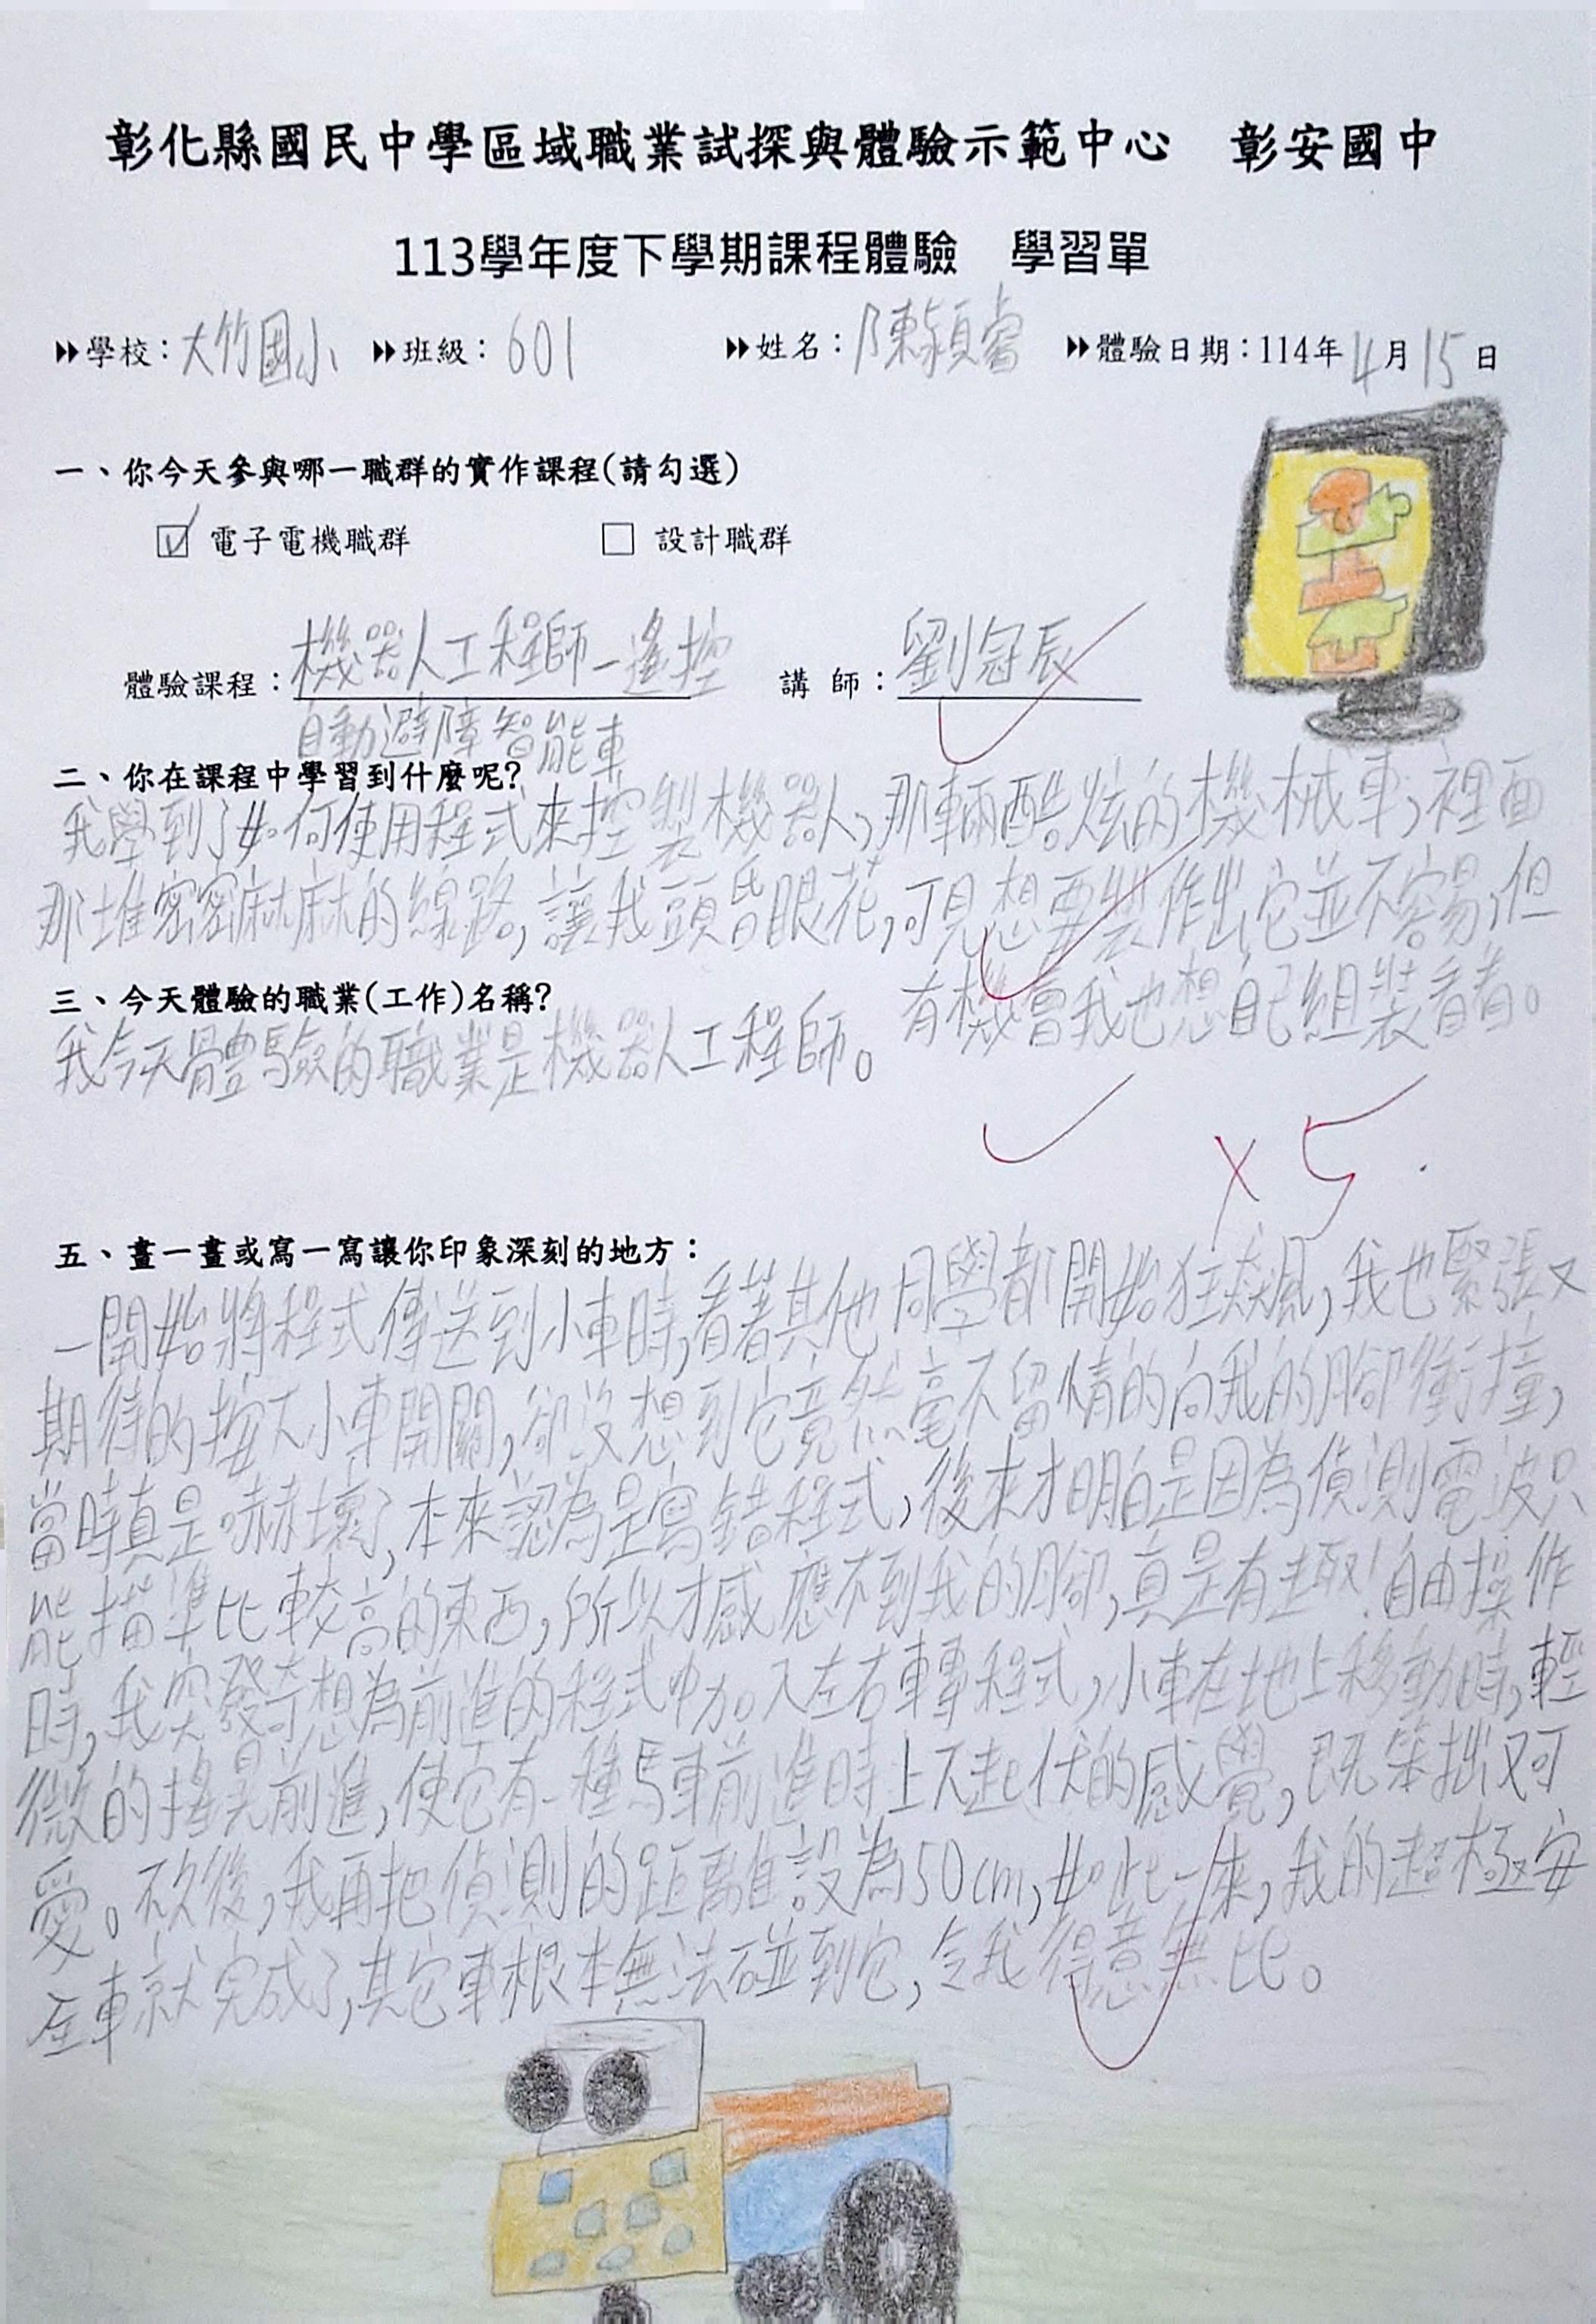 彰化縣國民中學區域職業試探與體驗示範中心 彰安國中
113學年度下學期課程體驗 學習單
學校：大竹國小 班級：601 姓名：陳穎睿 體驗日期：114年4月15日
一、你今天參與哪一職群的實作課程(請勾選)
☑ 電子電機職群 □ 設計職群
體驗課程：機器人工程師－遙控 講 師：劉冠辰
自動避障智能車
二、你在課程中學習到什麼呢？
我學到了如何使用程式來控製機器人，那輛酷炫的機械車，裡面
那堆密密麻麻的線路，讓我頭昏眼花，可見想要製作出它並不容易，但
有機會我也想自己組裝看看。
三、今天體驗的職業(工作)名稱？
我今天體驗的職業是機器人工程師。
×5
五、畫一畫或寫一寫讓你印象深刻的地方：
一開始將程式傳送到小車時，看著其他同學都開始狂飆，我也緊張又
期待的按下小車開關，卻沒想到它竟然毫不留情的向我的腳衝撞，
當時真是嚇壞了，本來認為是寫錯程式，後來才明白是因為偵測電波只
能描準比較高的東西，所以才感應不到我的腳，真是有趣！自由操作
時，我突發奇想為前進的程式中加入左右轉程式，小車在地上移動時，輕
微的搖晃前進，使它有一種馬車前進時上下起伏的感覺，既笨拙又可
愛。然後，我再把偵測的距離設為50cm，如此一來，我的超極安
全車就完成了，其它車根本無法碰到它，令我得意無比。